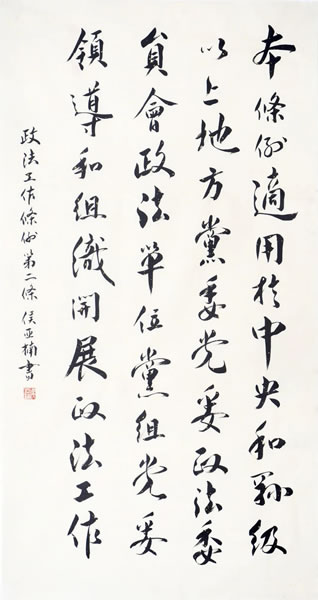 本條例適用於中央和縣級
以上地方黨委党委政法委
員會政法單位黨組党委
領導和組織開展政法工作
政法工作條例第二條 侯亚楠書